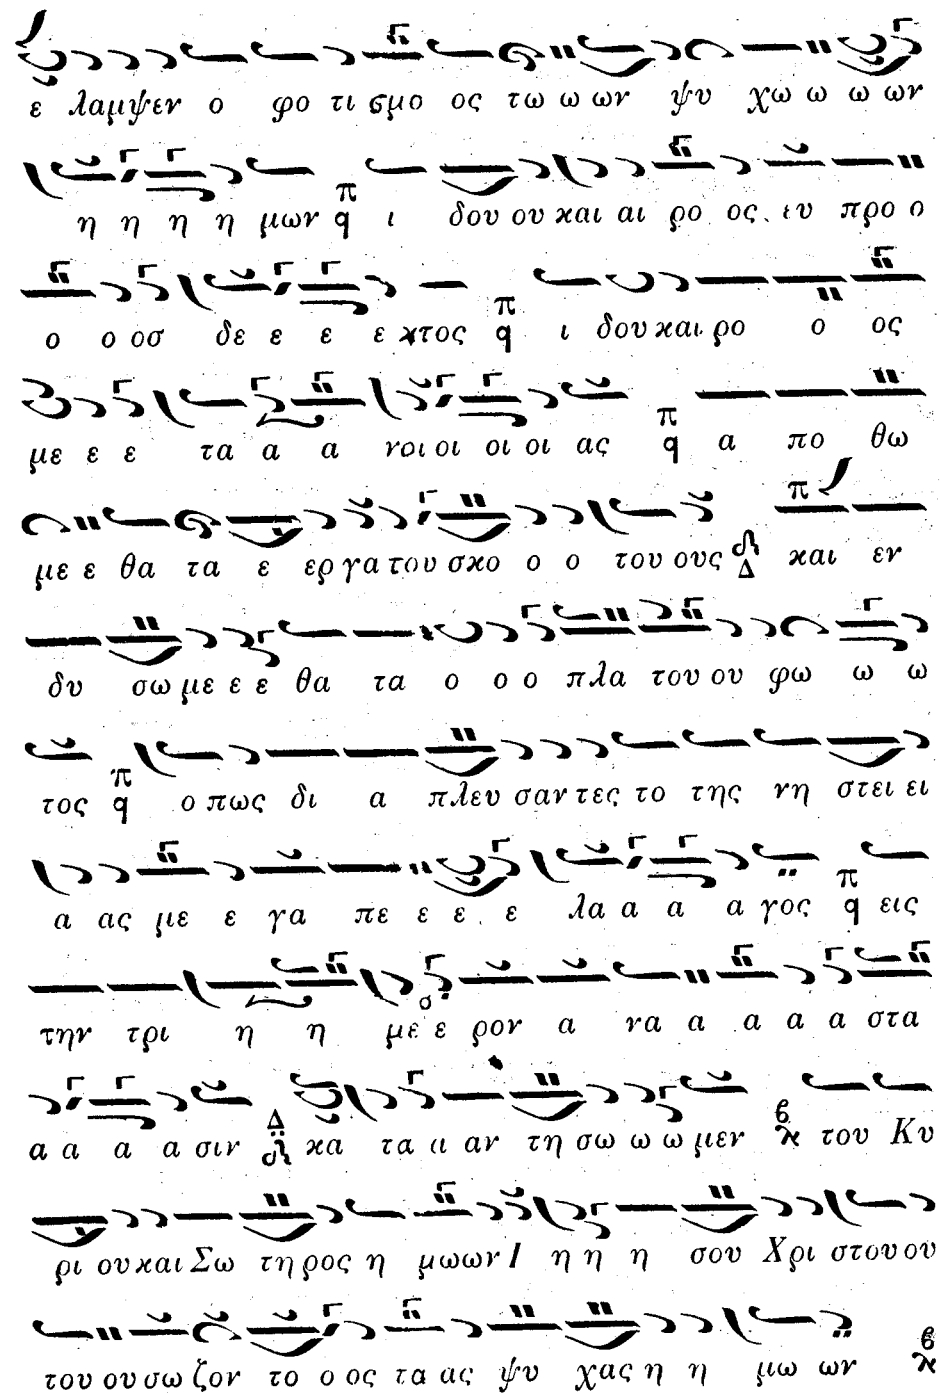 ε λαμψεν ο φο τι σμο ος τω ω ων ψυ χω ω ω ων
η η η η μων π q ι δου ου και αι ρο ος ευ προ ο
ο ο οσ δε ε ε ε κτος π q ι δου και ρο ο ος
με ε ε τα α α νοι οι οι οι ας π q α πο θω
με ε θα τα ε ερ γα του σκο ο ο του ους Δ π και εν
δυ σω με ε ε θα τα ο ο ο πλα του ου φω ω ω
τος π q ο πως δι α πλευ σαν τες το της νη στει ει
α ας με ε γα πε ε ε ε λα α α α γος π q εις
την τρι η η με ε ρον α να α α α α στα
α α α α σιν Δ κα τα αι αν τη σω ω ω μεν του Κυ
ρι ου και Σω τη ρος η μωων Ι η η η σου Χρι στου ου
του ου σω ζον το ο ος τα ας ψυ χας η η μω ων